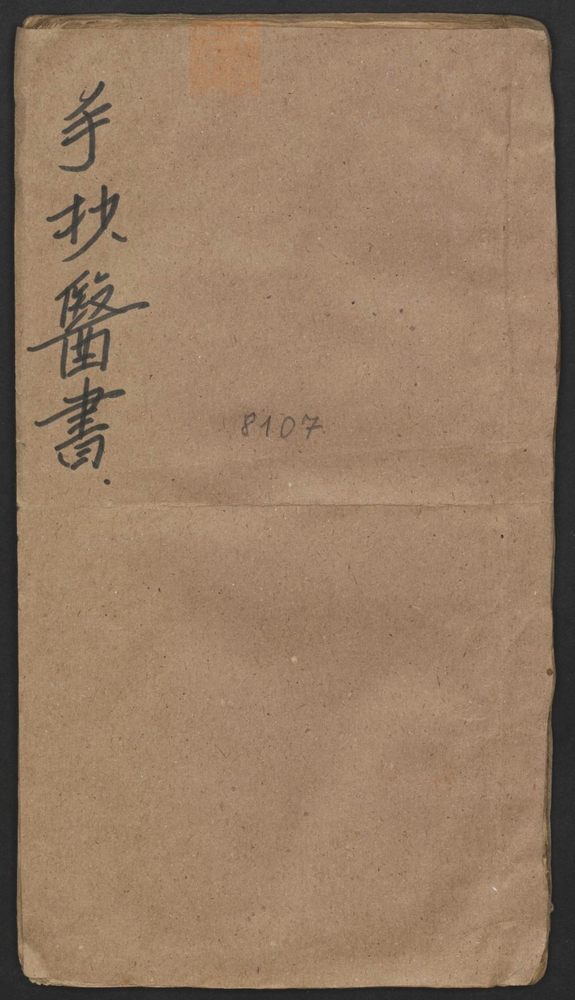 手抄醫書
8107